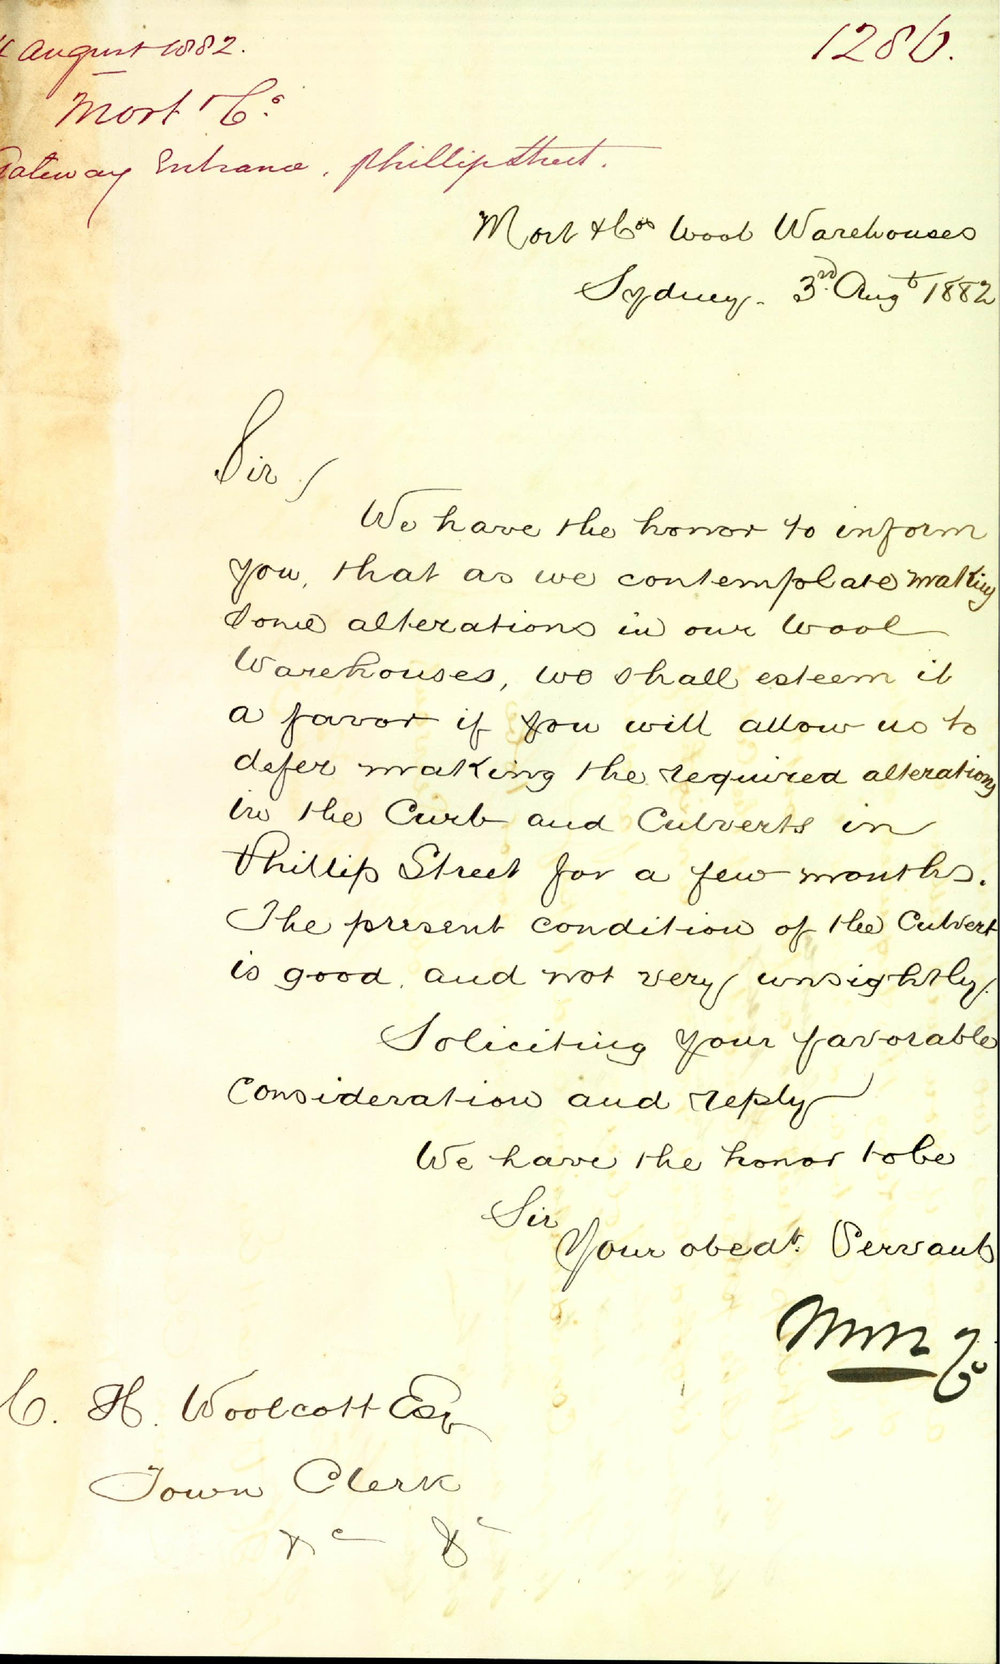 4 August 1882.
1286.
Mort & Co.
Gateway Entrance, Phillip Street.
Mort & Cos Wool Warehouses
Sydney. 3rd Augt 1882
Sir,
We have the honor to inform
you, that as we contemplate making
some alterations in our Wool
Warehouses, we shall esteem it
a favor if you will allow us to
defer making the required alterations
in the Curb and Culverts in
Phillip Street for a few months.
The present condition of the Culvert
is good, and not very unsightly.
Soliciting your favorable
consideration and reply
We have the honor to be
Sir
Your obedt. Servants
Mort & Co
C. H. Woolcott Esq
Town Clerk
&c &c